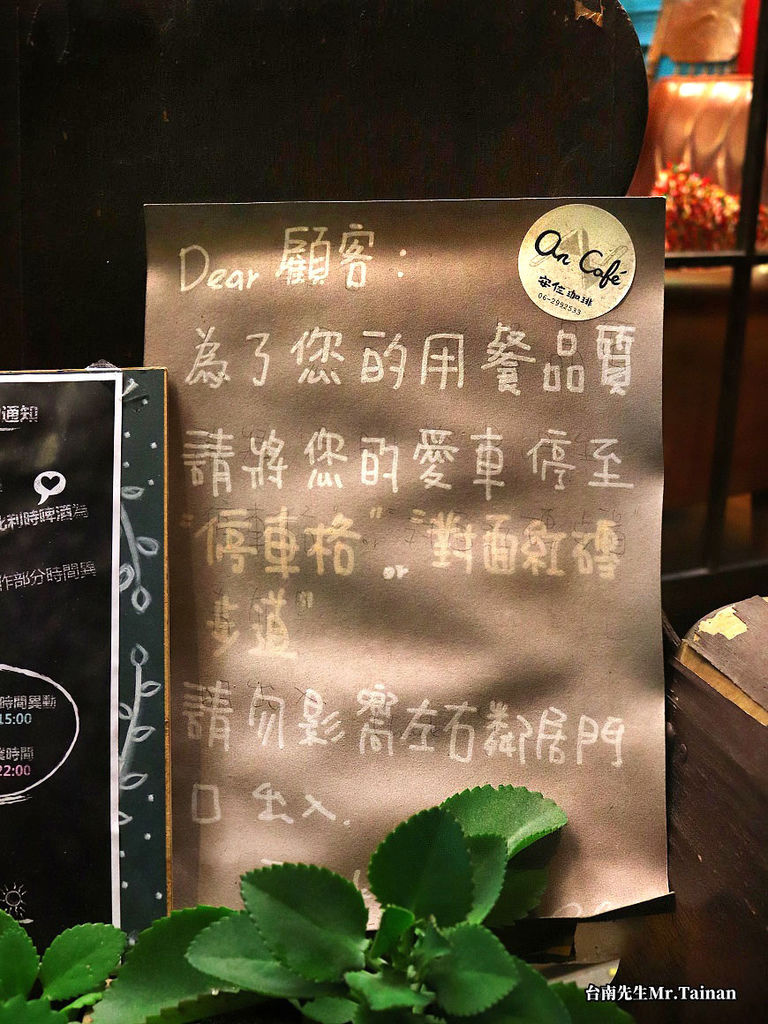 Dear 顧客：
An Café
安位珈琲
06-2992533
為了您的用餐品質
請將您的愛車停至
"停車格" or "對面紅磚
步道"
請勿影響左右鄰居門
口出入.
通知
比利時啤酒為
作部分時間異
時間異動
15:00
業時間
22:00
台南先生Mr.Tainan